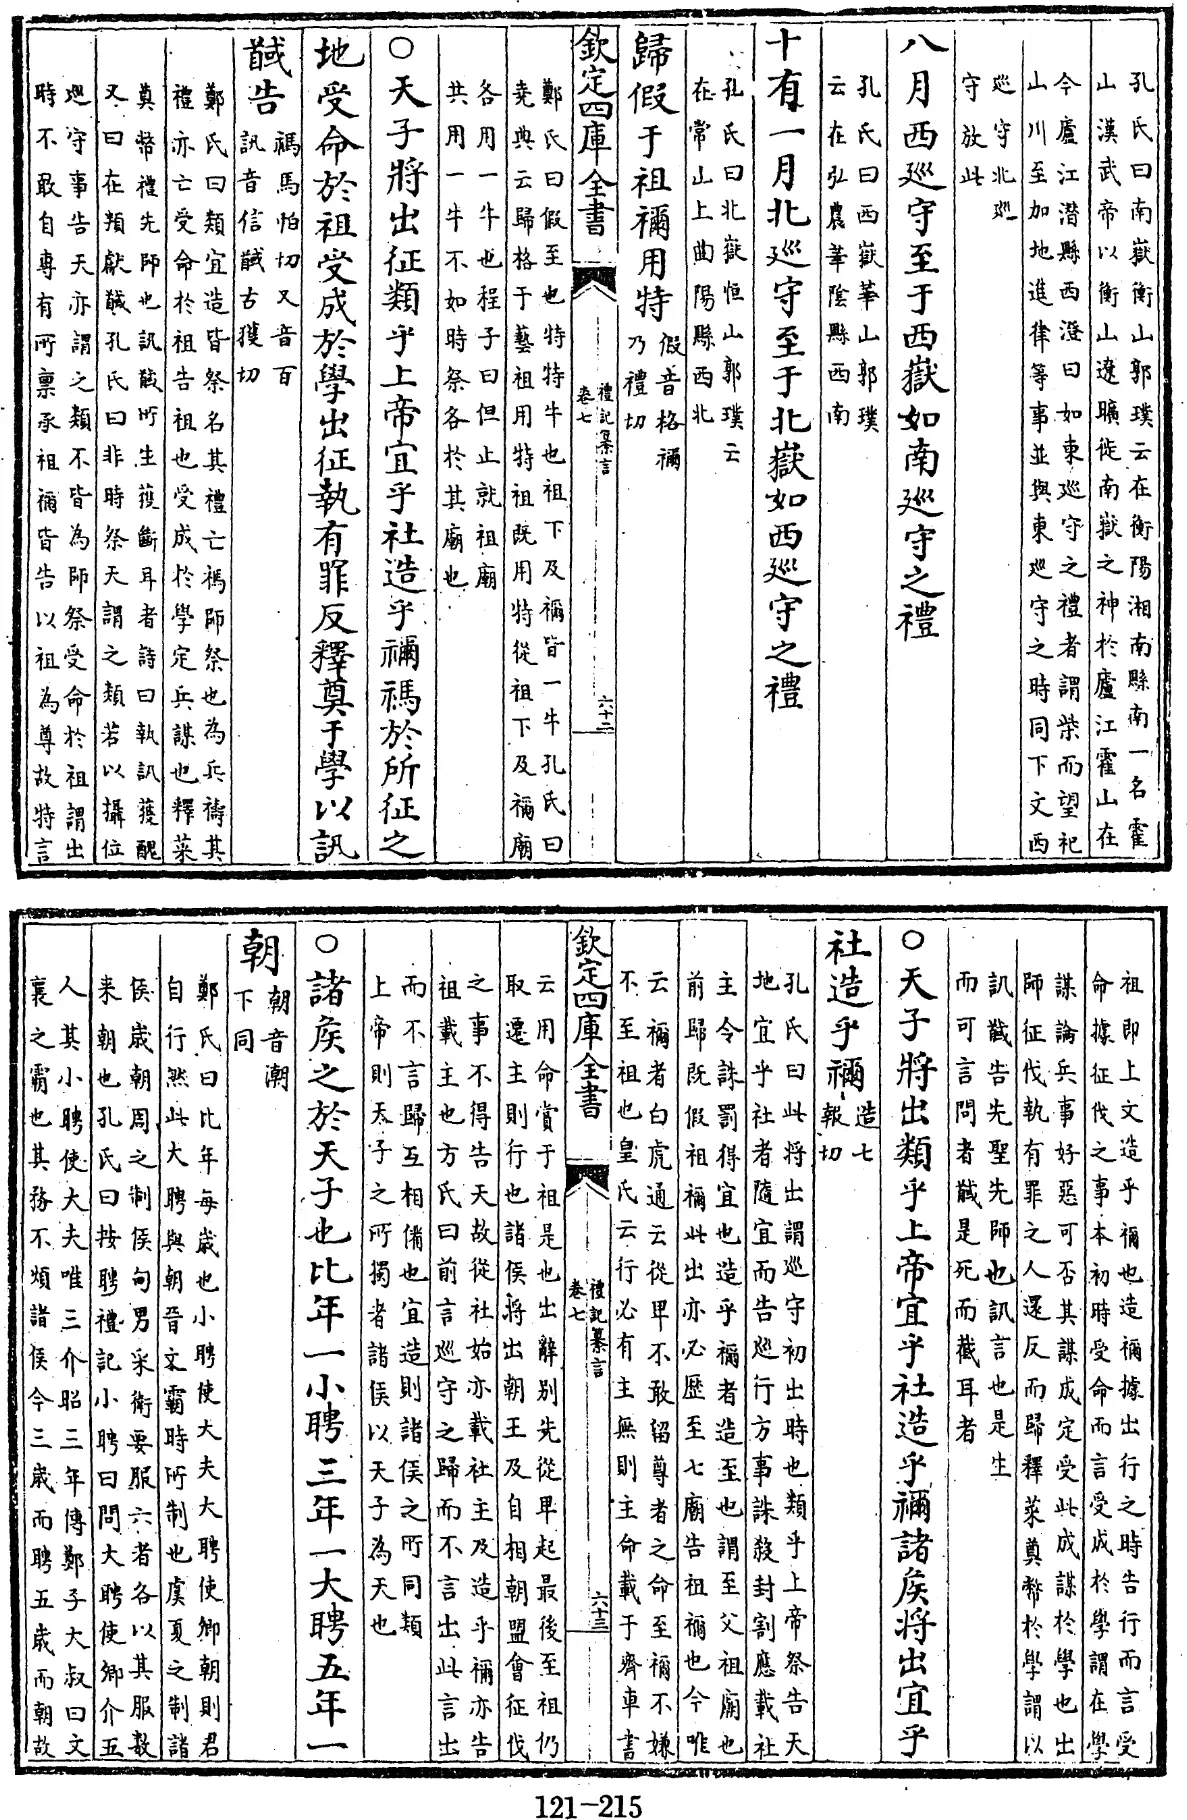 孔氏曰南嶽衡山郭璞云在衡陽湘南縣南一名霍
山漢武帝以衡山遼曠徙南嶽之神於廬江霍山在
今廬江潛縣西澄曰如東巡守之禮者謂柴而望祀
山川至加地進律等事並與東巡守之時同下文西
巡守北巡
守放此
八月西巡守至于西嶽如南巡守之禮
孔氏曰西嶽華山郭璞
云在弘農華陰縣西南
十有一月北巡守至于北嶽如西巡守之禮
孔氏曰北嶽恒山郭璞云
在常山上曲陽縣西北
歸假于祖禰用特假音格禰
乃禮切
欽定四庫全書
禮記纂言
卷七
六十二
鄭氏曰假至也特特牛也祖下及禰皆一牛孔氏曰
堯典云歸格于藝祖用特祖既用特從祖下及禰廟
各用一牛也程子曰但止就祖廟
共用一牛不如時祭各於其廟也
○天子將出征類乎上帝宜乎社造乎禰禡於所征之
地受命於祖受成於學出征執有罪反釋奠于學以訊
馘告禡馬怕切又音百
訊音信馘古獲切
鄭氏曰類宜造皆祭名其禮亡禡師祭也為兵禱其
禮亦亡受命於祖告祖也受成於學定兵謀也釋菜
奠幣禮先師也訊馘所生獲斷耳者詩曰執訊獲醜
又曰在頖獻馘孔氏曰非時祭天謂之類若以攝位
巡守事告天亦謂之類不皆為師祭受命於祖謂出
時不敢自專有所禀承祖禰皆告以祖為尊故特言
祖即上文造乎禰也造禰據出行之時告行而言受
命據征伐之事本初時受命而言受成於學謂在學
謀論兵事好惡可否其謀成定受此成謀於學也出
師征伐執有罪之人還反而歸釋菜奠幣於學謂以
訊馘告先聖先師也訊言也是生
而可言問者馘是死而截耳者
○天子將出類乎上帝宜乎社造乎禰諸侯將出宜乎
社造乎禰造七
報切
孔氏曰此將出謂巡守初出時也類乎上帝祭告天
地宜乎社者隨宜而告巡行方事誅殺封割應載社
主令誅罰得宜也造乎禰者造至也謂至父祖廟也
前歸既假祖禰此出亦必歷至七廟告祖禰也今唯
云禰者白虎通云從卑不敢留尊者之命至禰不嫌
不至祖也皇氏云行必有主無則主命載于齊車書
欽定四庫全書
禮記纂言
卷七
六十三
云用命賞于祖是也出辭别先從卑起最後至祖仍
取遷主則行也諸侯將出朝王及自相朝盟會征伐
之事不得告天故從社始亦載社主及造乎禰亦告
祖載主也方氏曰前言巡守之歸而不言出此言出
而不言歸互相備也宜造則諸侯之所同類
上帝則天子之所獨者諸侯以天子為天也
○諸侯之於天子也比年一小聘三年一大聘五年一
朝朝音潮
下同
鄭氏曰比年每歲也小聘使大夫大聘使卿朝則君
自行然此大聘與朝晉文霸時所制也虞夏之制諸
侯歲朝周之制侯甸男采衛要服六者各以其服數
來朝也孔氏曰按聘禮記小聘曰問大聘使卿介五
人其小聘使大夫唯三介昭三年傳鄭子大叔曰文
襄之霸也其務不煩諸侯令三歲而聘五歲而朝故
121-215